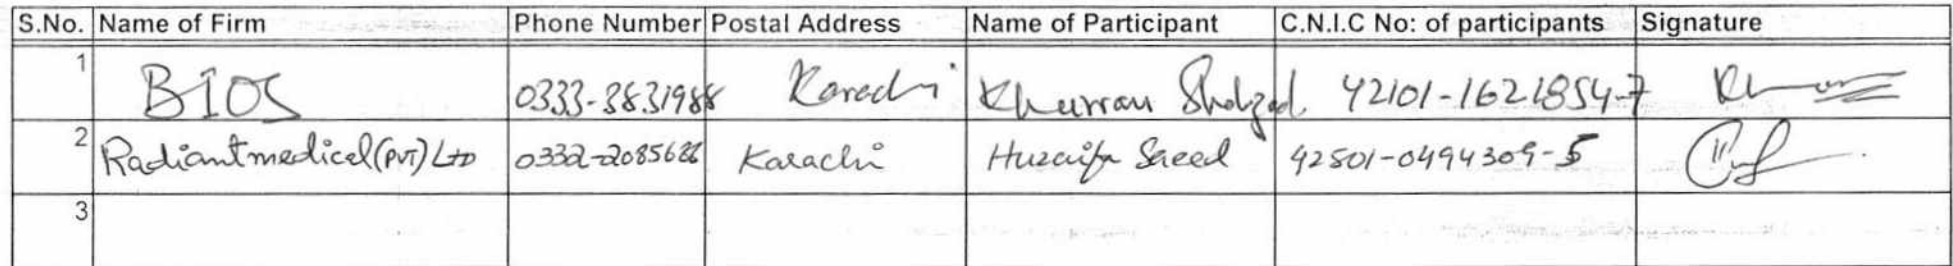 S.No. Name of Firm Phone Number Postal Address Name of Participant C.N.I.C No: of participants Signature
1 BIOS 0333-3831988 Karachi Khurram Shahzad 42101-1621854-7
2 Radiantmedical(PVT) LTD 0332-2085688 Karachi Huzaifa Saeed 42501-0494309-5
3